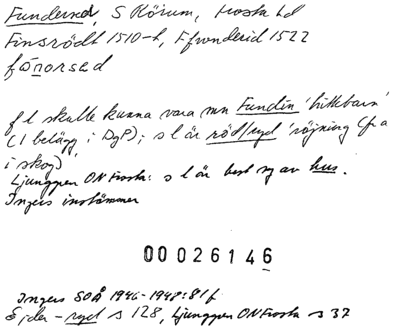 Funderud, S Rörum, Frosta hd
Finsrödt 1510-t, Ffunderid 1522
fö̱norsed
fl skulle kunna vara mn Fundin 'hittebarn'
(1 belägg i DgP); s l är röd/ryd 'röjning (fr a
i skog)'
Ljunggren ON Frosta: s l är best sg av hus.
Ingers instämmer
00026146
Ingers SOÅ 1946-1948:81f
Sjder-ryd s 128, Ljunggren ON Frosta s 37